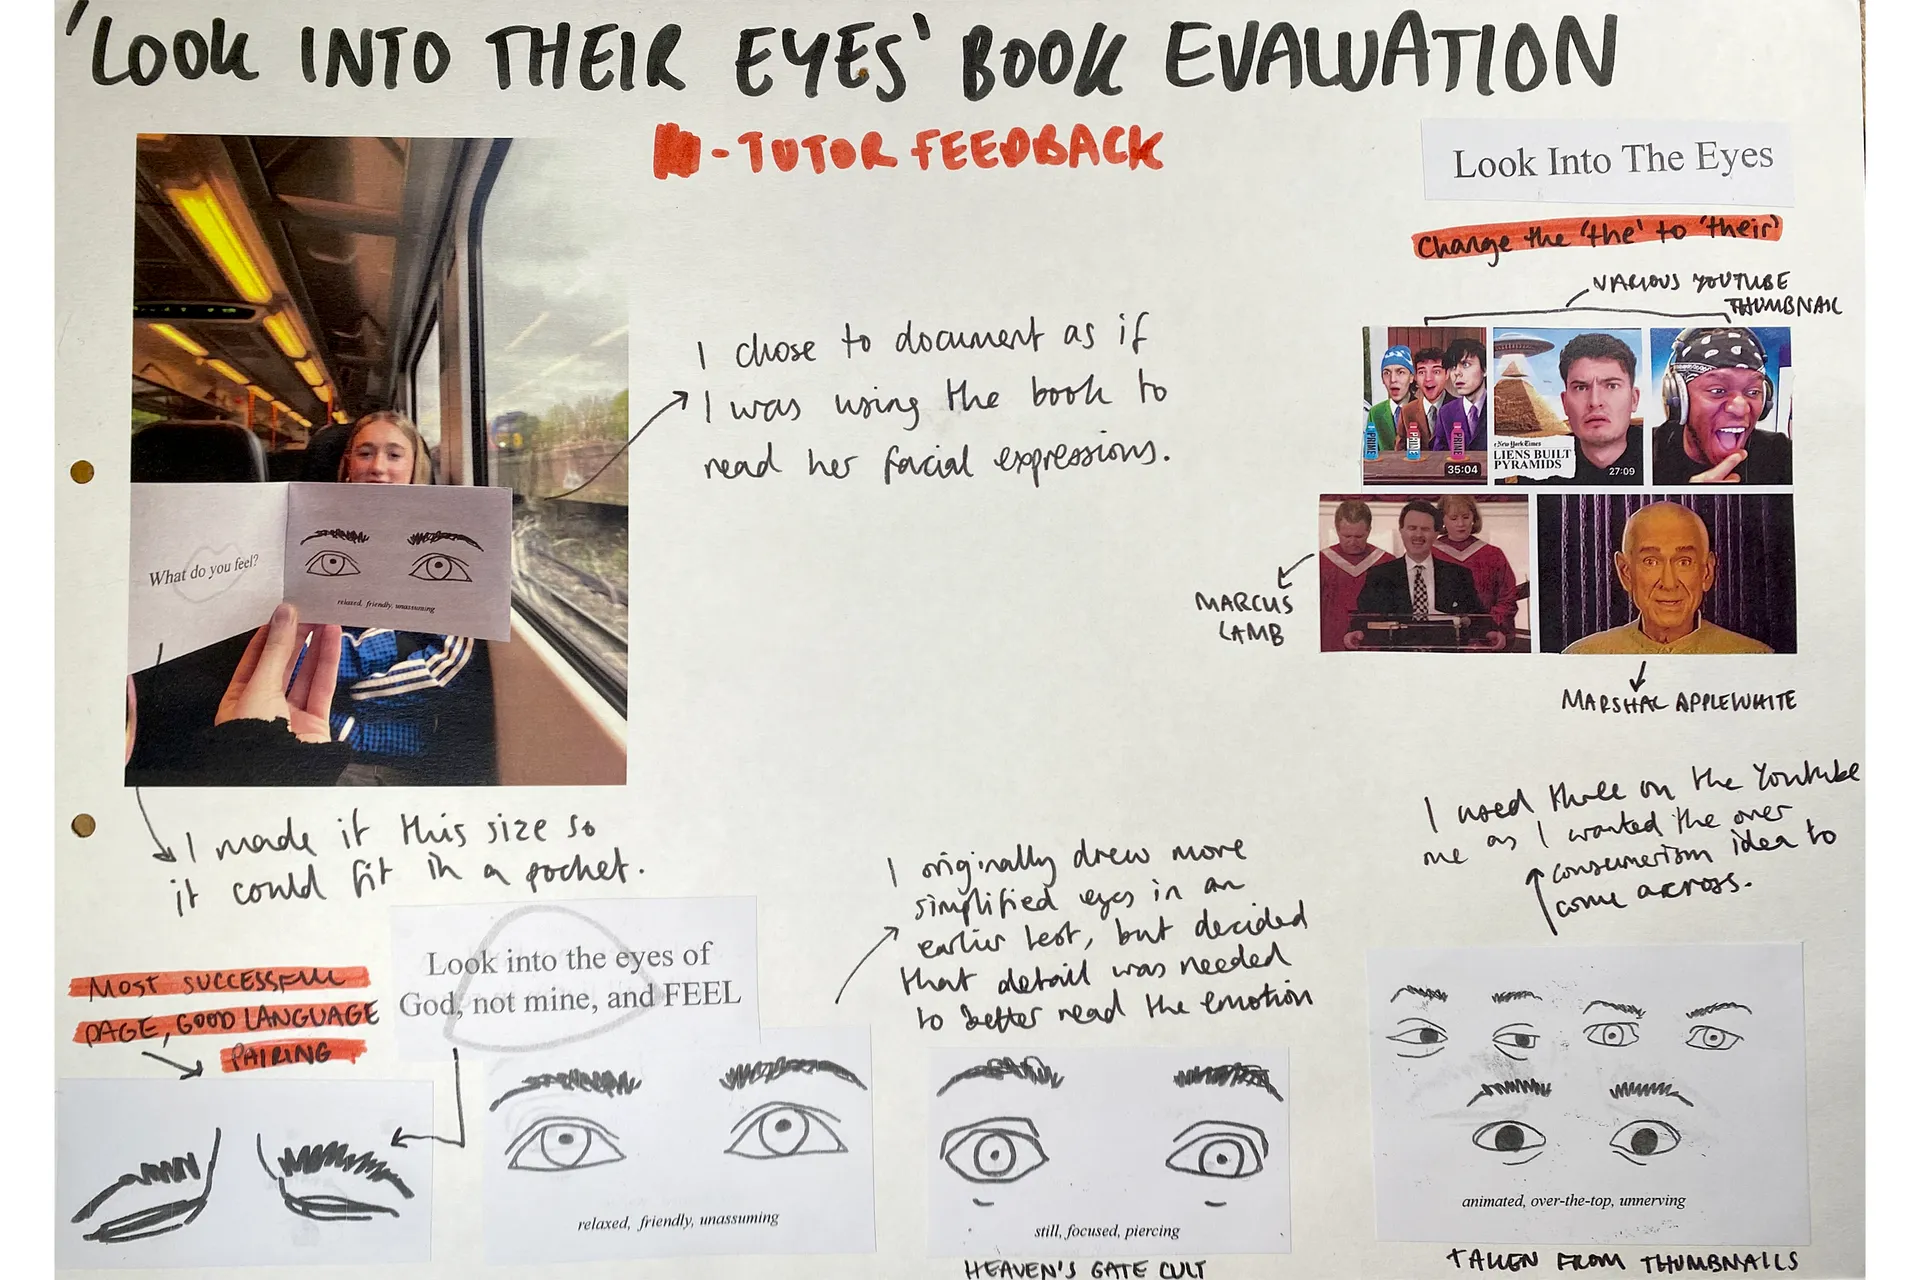 'LOOK INTO THEIR EYES' BOOK EVALUATION
- TUTOR FEEDBACK
Look Into The Eyes
Change the 'the' to 'their'
VARIOUS YOUTUBE
THUMBNAIL
I chose to document as if
I was using the book to
read her facial expressions.
PRIME
PRIME
PRIME
35:04
New York Times
LIENS BUILT
PYRAMIDS
27:09
What do you feel?
relaxed, friendly, unassuming
MARCUS
LAMB
MARSHAL APPLEWHITE
I made it this size so
it could fit in a pocket.
I used three on the Youtube
me as I wanted the over
consumerism idea to
come across.
I originally drew more
simplified eyes in an
earlier test, but decided
that detail was needed
to better read the emotion
MOST SUCCESSFUL
PAGE, GOOD LANGUAGE
PAIRING
Look into the eyes of
God, not mine, and FEEL
relaxed, friendly, unassuming
still, focused, piercing
HEAVEN'S GATE CULT
animated, over-the-top, unnerving
TAKEN FROM THUMBNAILS